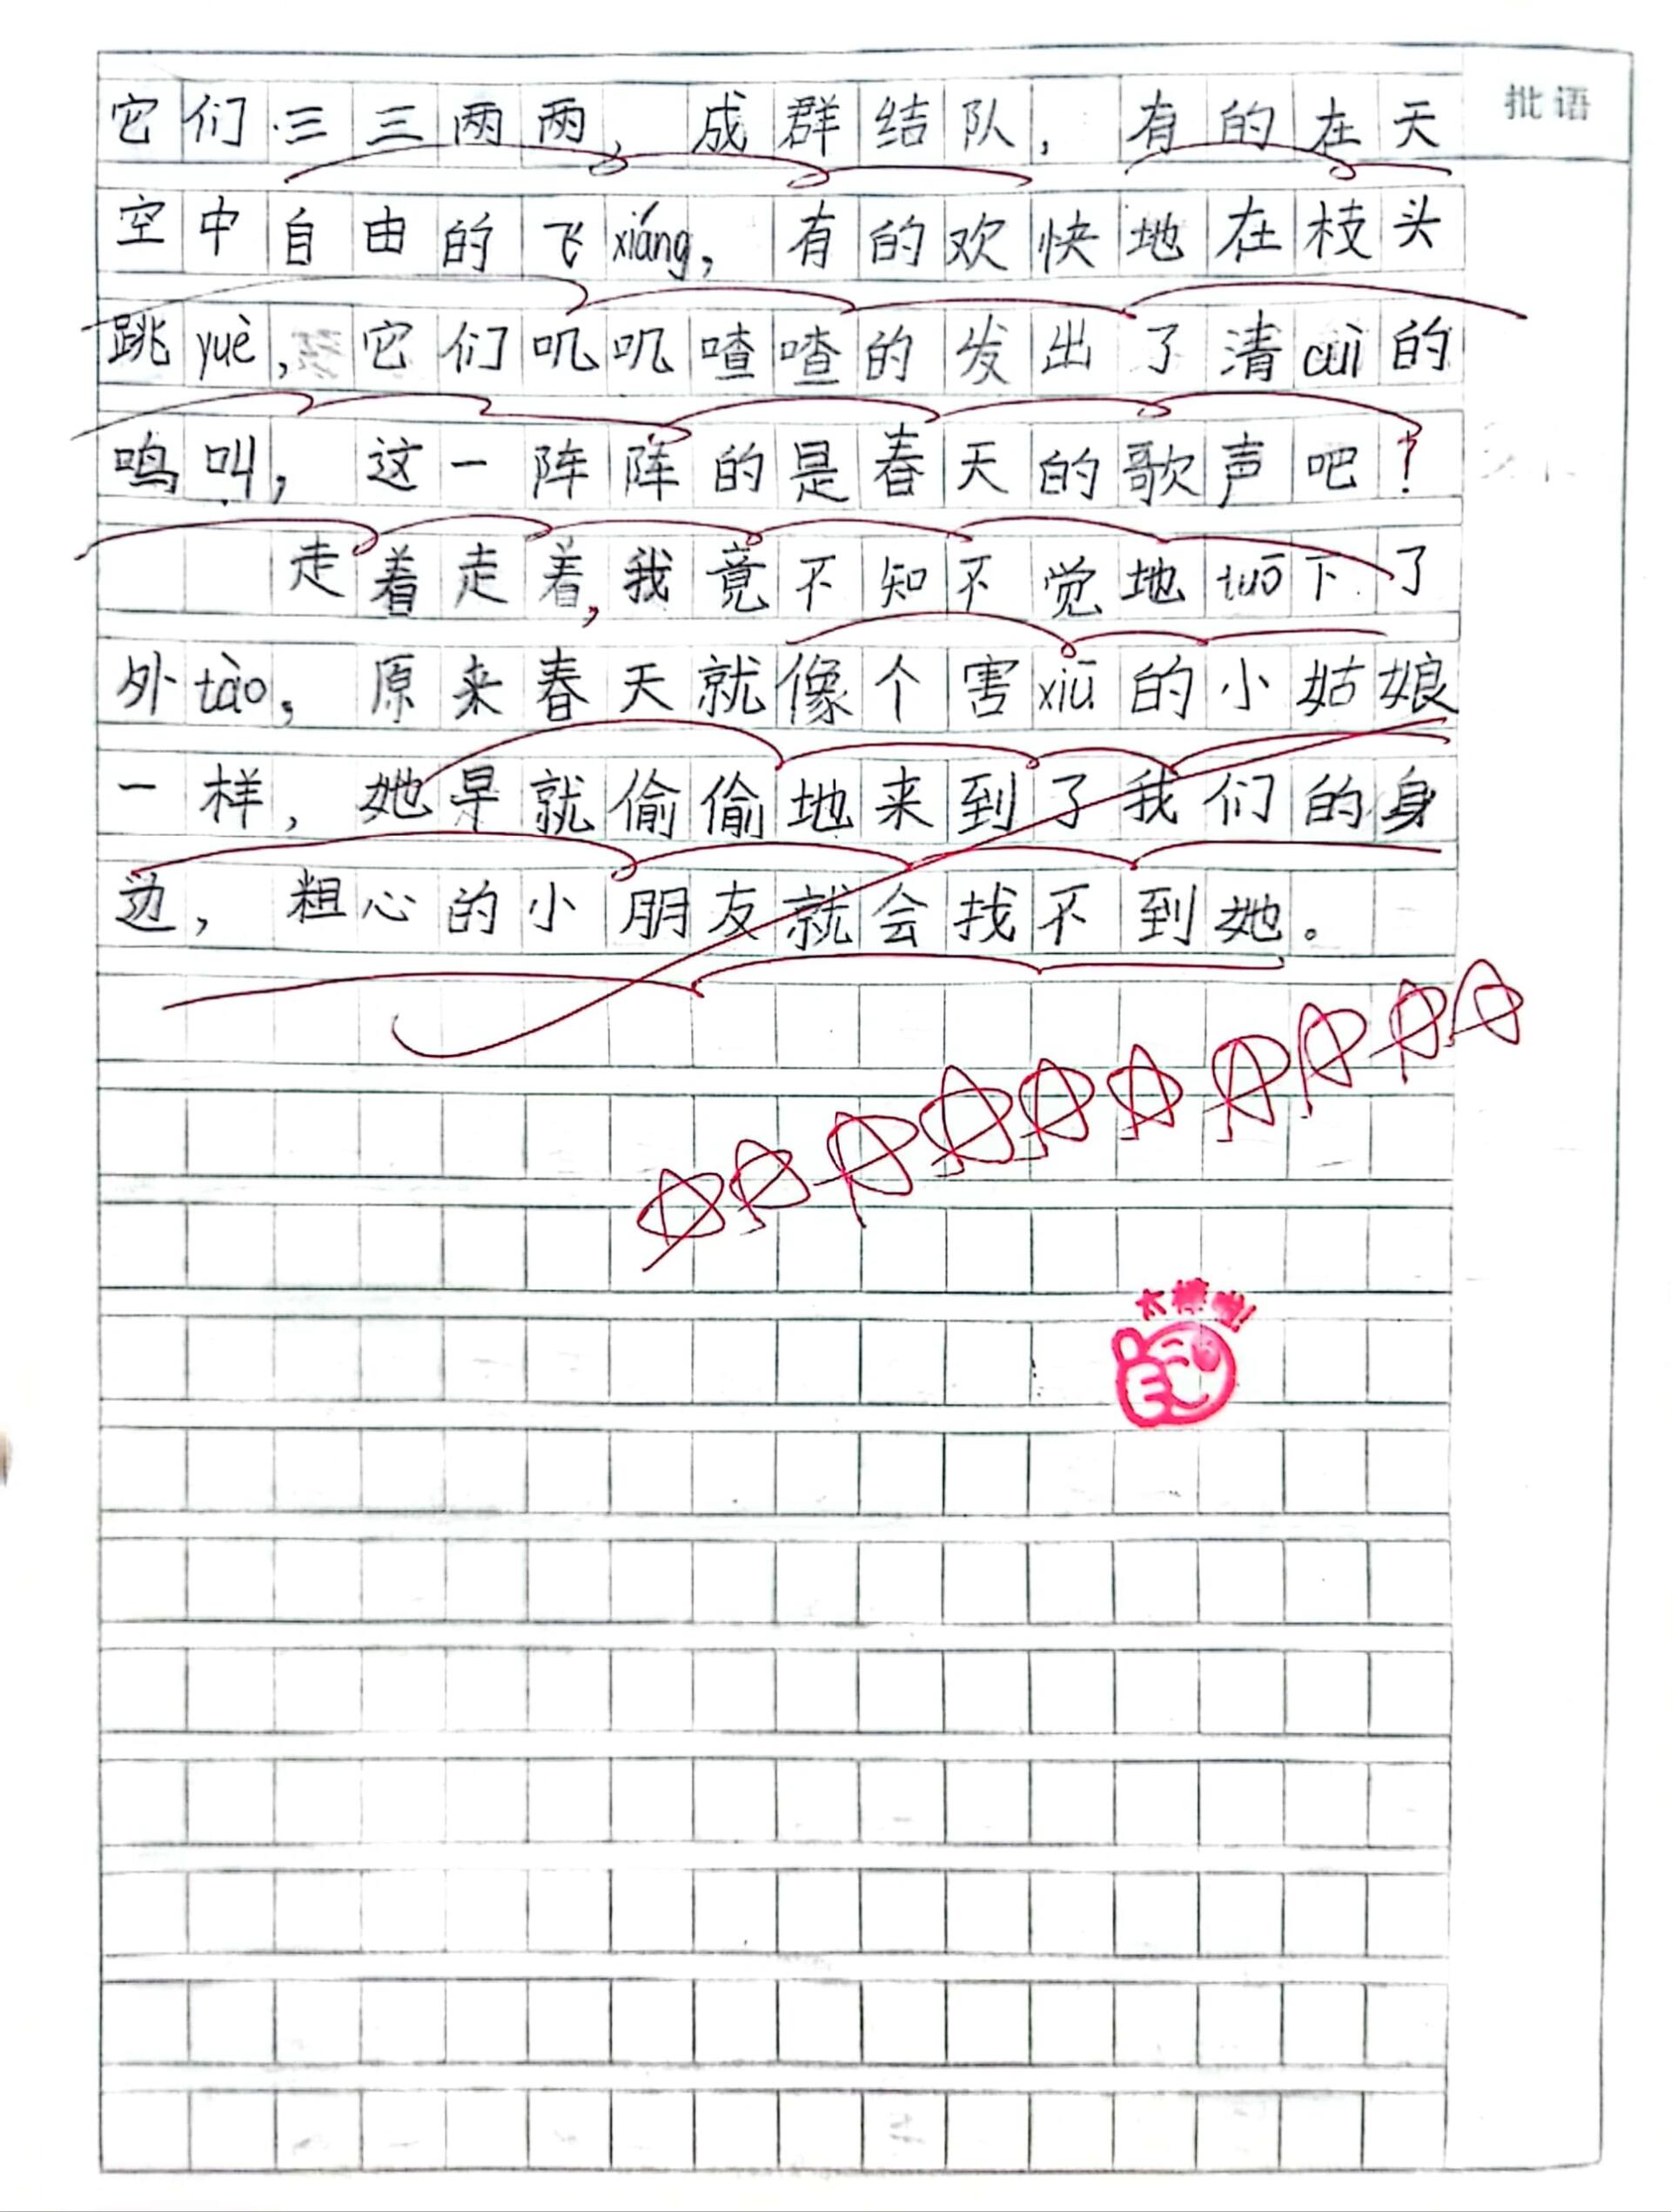 批语
它们三三两两，成群结队，有的在天
空中自由的飞xiáng，有的欢快地在枝头
跳yuè，它们叽叽喳喳的发出了清cuì的
鸣叫，这一阵阵的是春天的歌声吧！
走着走着，我竟不知不觉地tuō下了
外tào，原来春天就像个害xiū的小姑娘
一样，她早就偷偷地来到了我们的身
边，粗心的小朋友就会找不到她。
太棒啦！